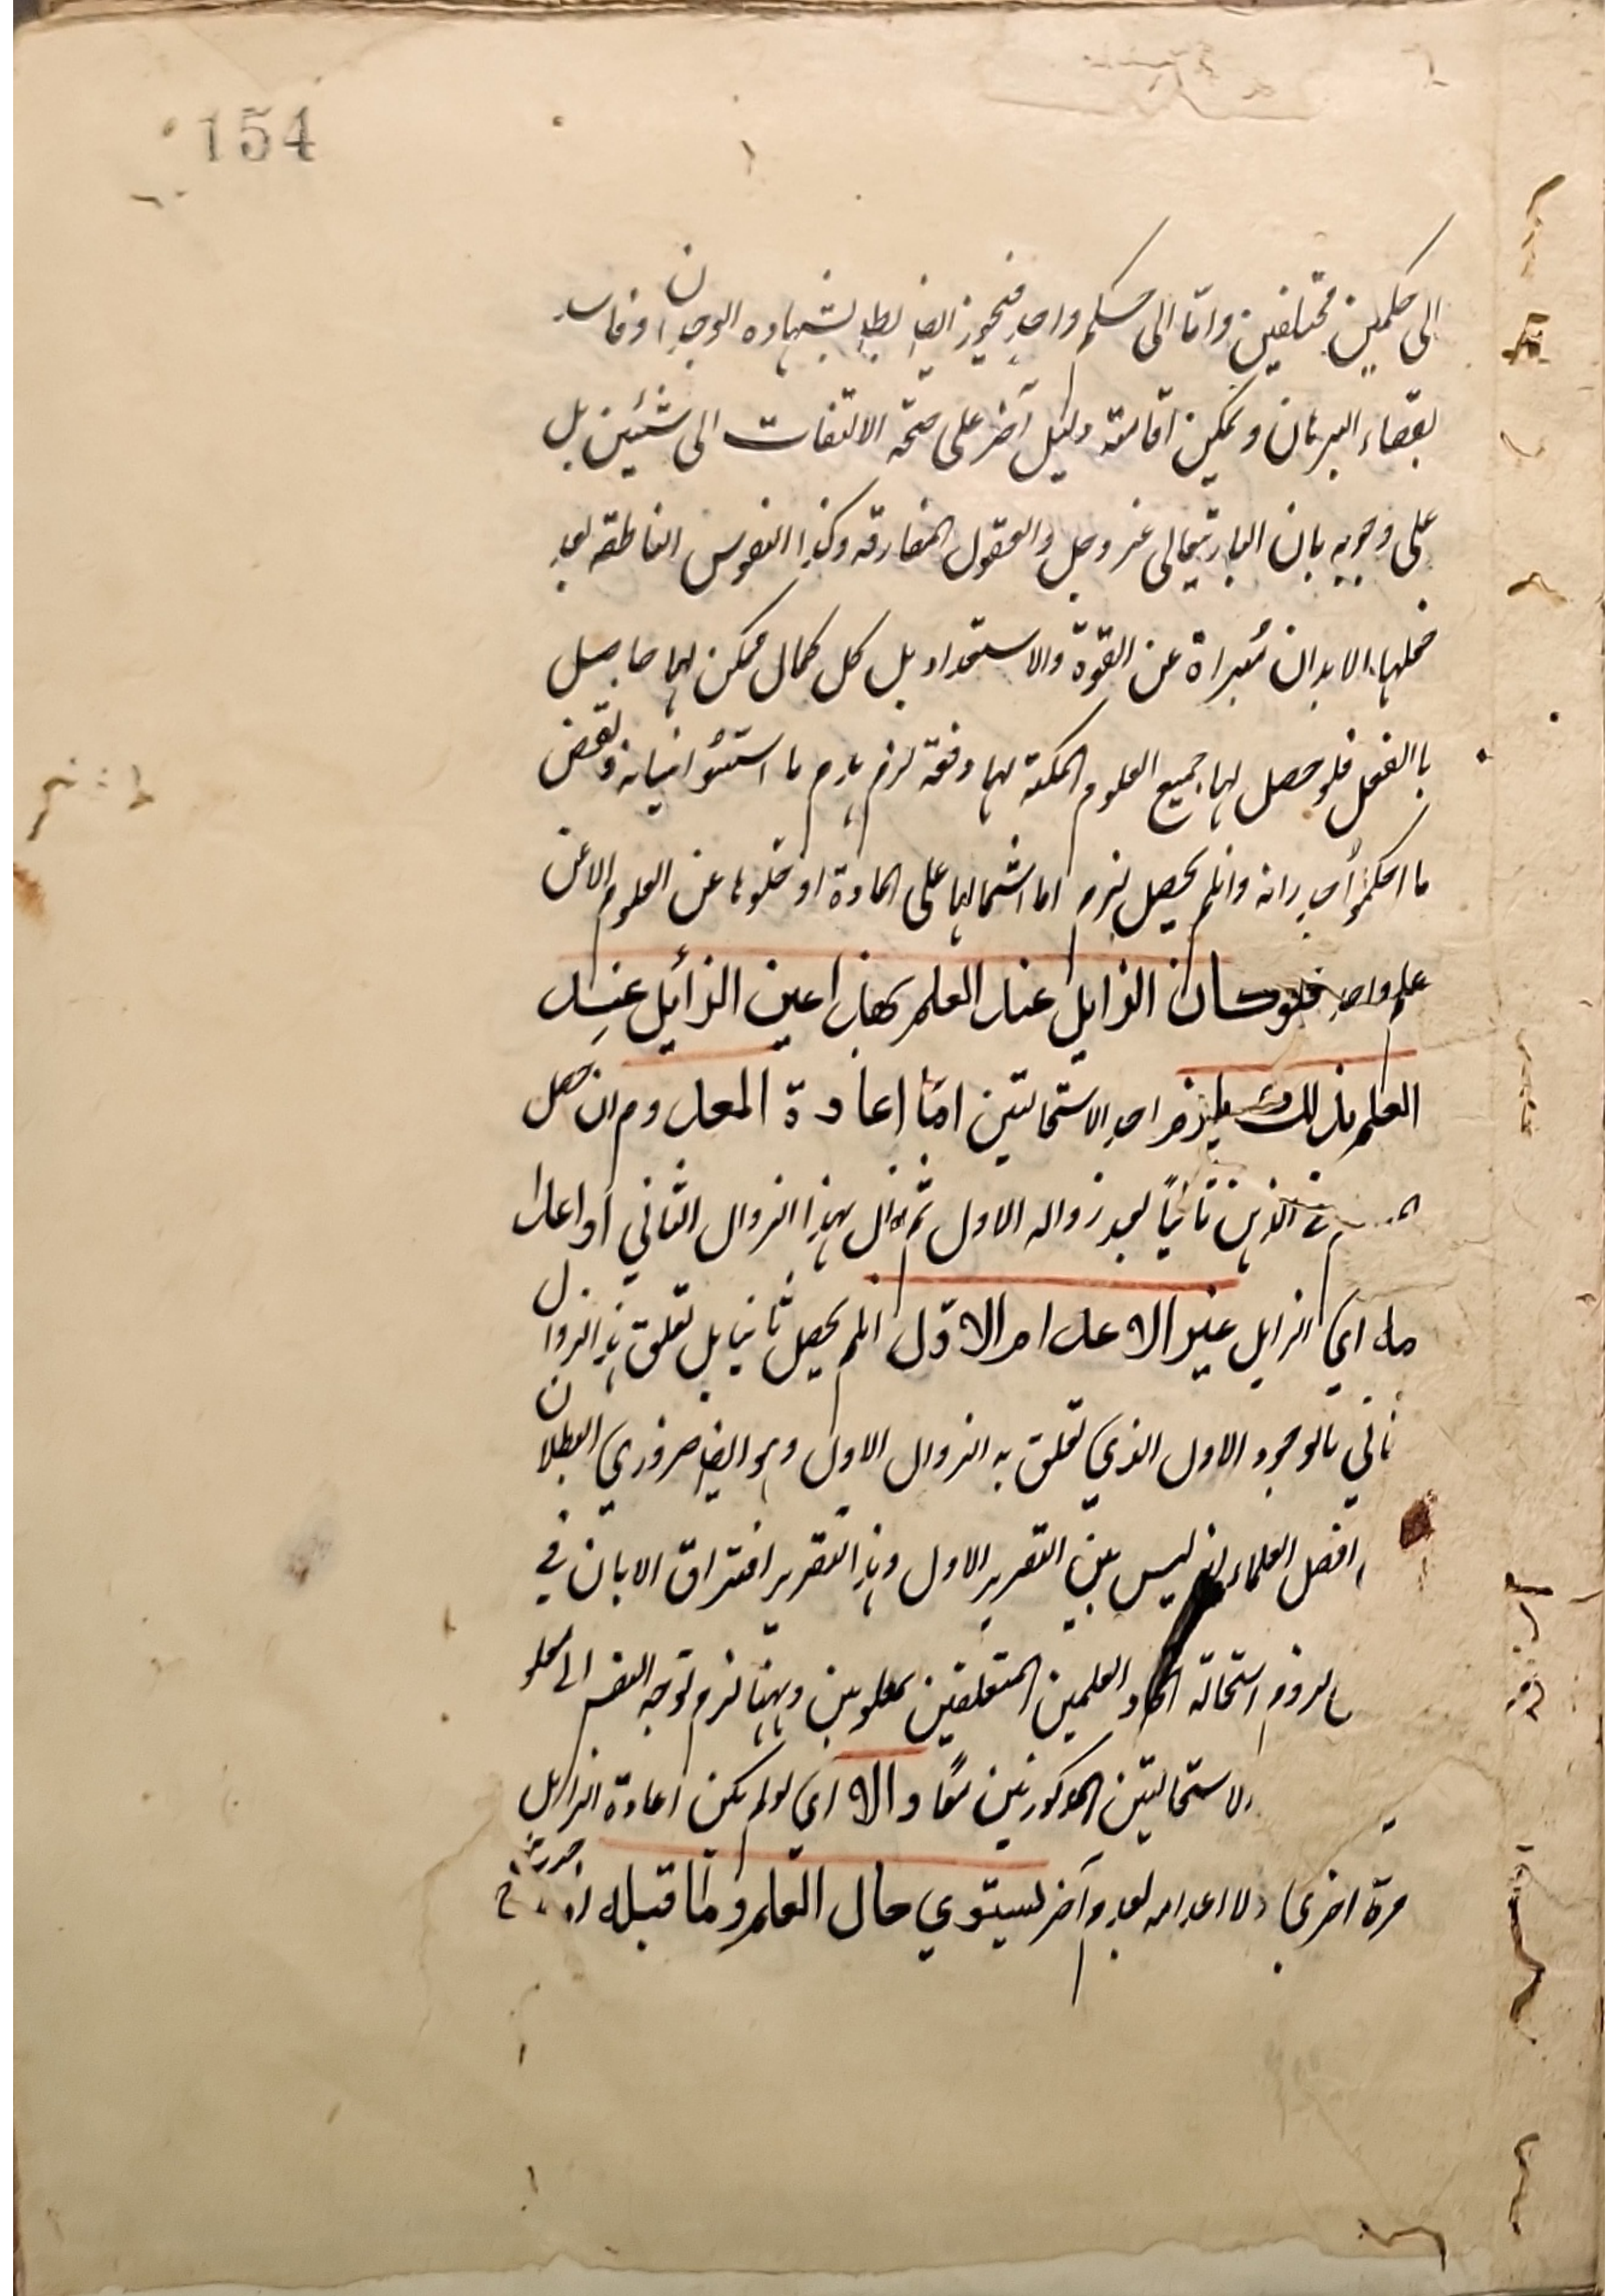 154
الى حكمين مختلفين واما الى حكم واحد فتجويز ايضا بط بشهادة الوجدان وفاسد
بقضاء البرهان ويمكن اقامة دليل آخر على صحة الالتفات الى شيئين بل
على وجوبه بان الباريتعالى عز وجل والعقول المفارقه وكذا النفوس الناطقه بعد
الابدان مُبراة عن القوة والاستعداد بل كل كمال ممكن لها حاصل
با الفعل فلو حصل لها جميع العلوم الممكنة لها دفعة لزم هدم ما استسُّوا بنيانه ونقض
ما احكموُا جدرانه وانلم يحصل لزم اما اشتمالها على المادة او خلوها عن العلوم الا عن
علم واحد فلو كان الزايل عند العلم بهذا عين الزائل عند
العلم بذلك يلزم احد الاستحالتين امّا اعادة المعدوم ان حصل
في الذهن ثانيًا بعد زواله الاول ثم زال بهذا الزوال الثاني او اعدا
مه اي الزايل غير الاعدام الاوّل انلم يحصل ثانيا بل تعلق هذا الزوال
ثاني بالوجود الاول الذي تعلق به الزوال الاول وهو ايضا ضروري البطلان
افضل العلماء ليس بين التقرير الاول وهذا التقرير افتراق الا بان في
لزوم استحالة اتحاد العلمين المتعلقين بمعلومين وههنا لزم توجه النفس الى
الاستحالتين المذكورتين معًا والا اي لو لم يكن اعادة الزايل
مرة اخرى ولا اعدامه بعدم آخر ليستوي حال العلم وما قبله